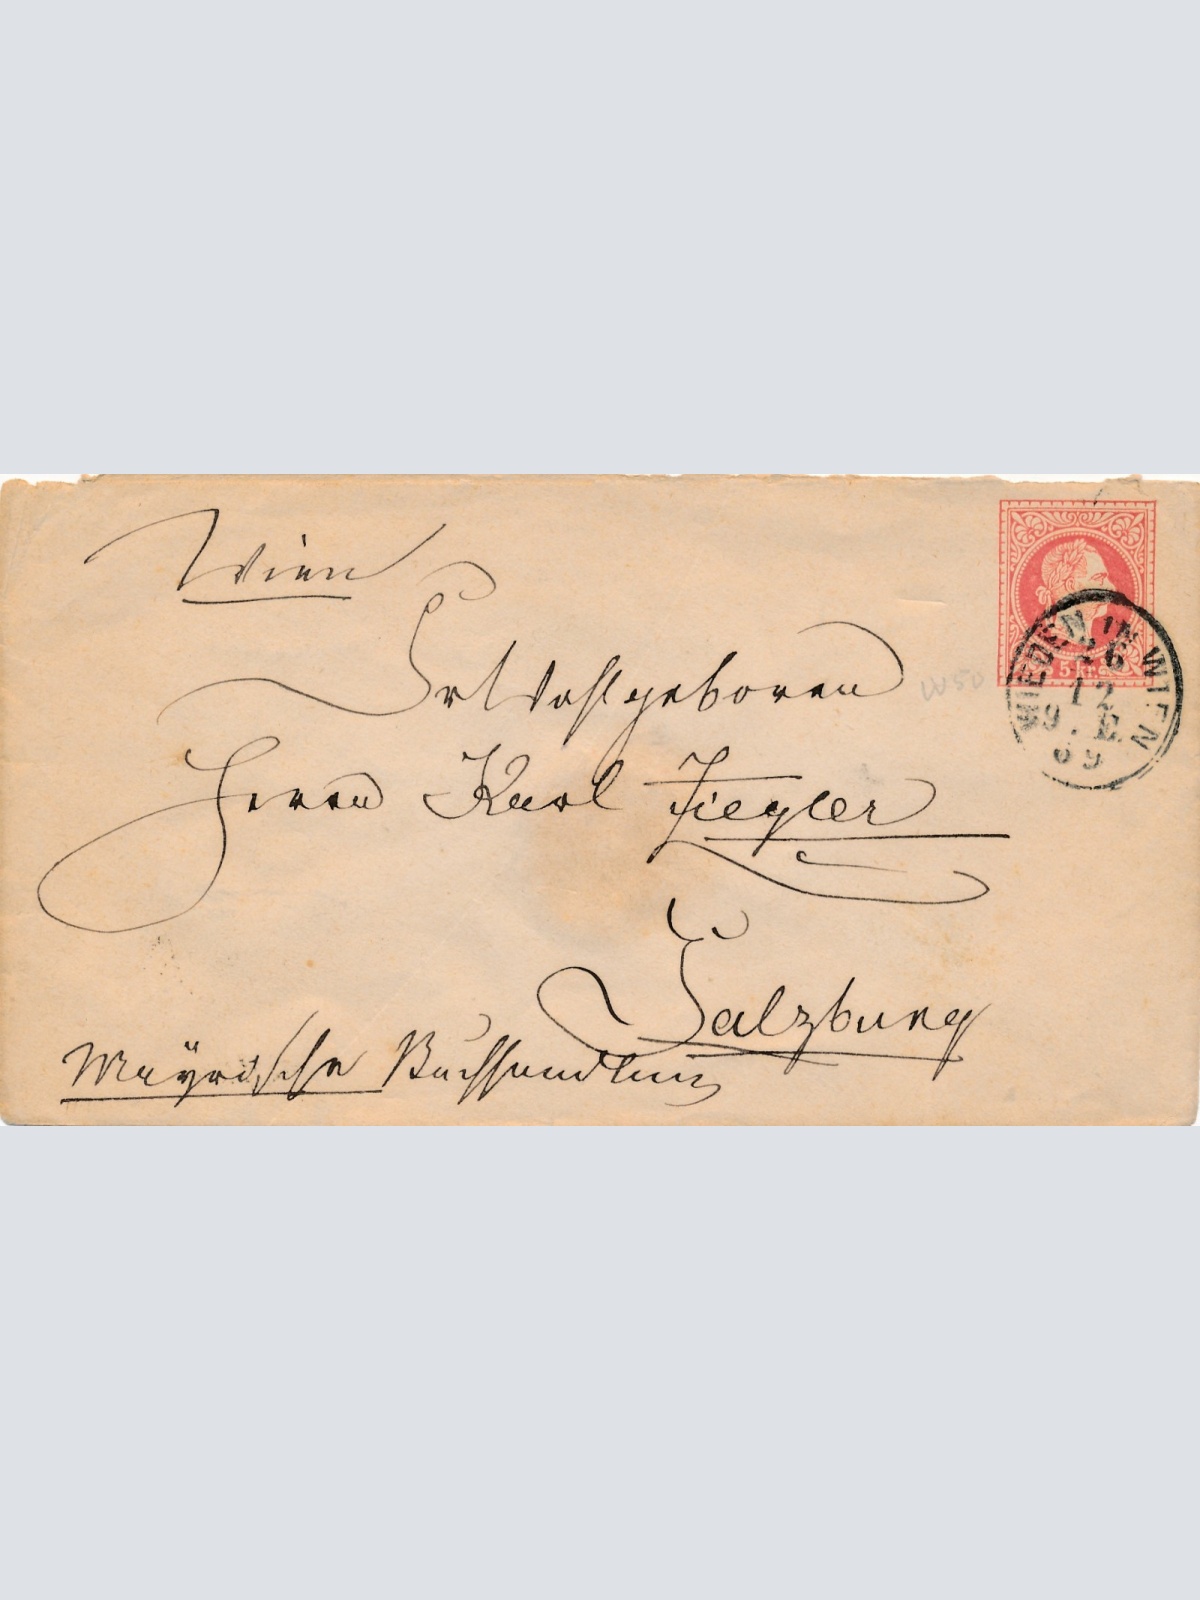 Wien
Sr Wohlgeboren
Herrn Karl Ziegler
Salzburg
Mayrische Buchhandlung
W50
5 kr.
WIEDEN IN WIEN
26
12
9. E.
69